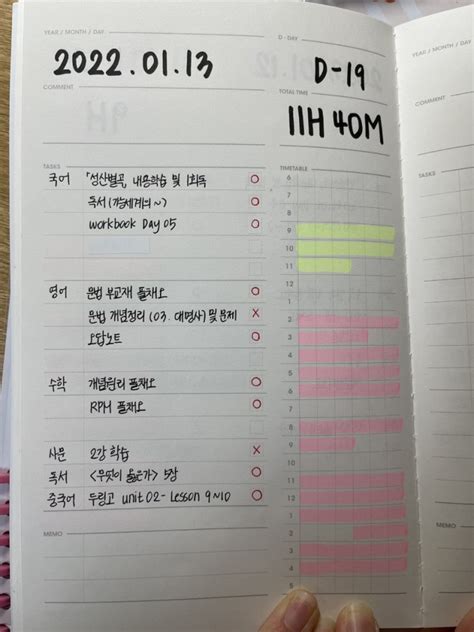 YEAR / MONTH / DAY
D-DAY
2022.01.13
D-19
COMMENT
TOTAL TIME
11H 40M
TASKS
TIMETABLE
국어 「성산별곡」 내용학습 및 1회독 O
독서 ( ~) O
workbook Day 05 O
영어 문법 부교재 풀채오 O
문법 개념정리 (03. 대명사) 및 문제 X
오답노트 O
수학 개념원리 풀채오 O
RPM 풀채오 O
사문 2강 학습 X
독서 <무엇이 옳은가> 5장 O
중국어 unit 02 - Lesson 9~10 O
MEMO
6
7
8
9
10
11
12
1
2
3
4
5
6
7
8
9
10
11
12
1
2
3
4
5
YEAR / MONTH / DAY
COMMENT
TASKS
MEMO